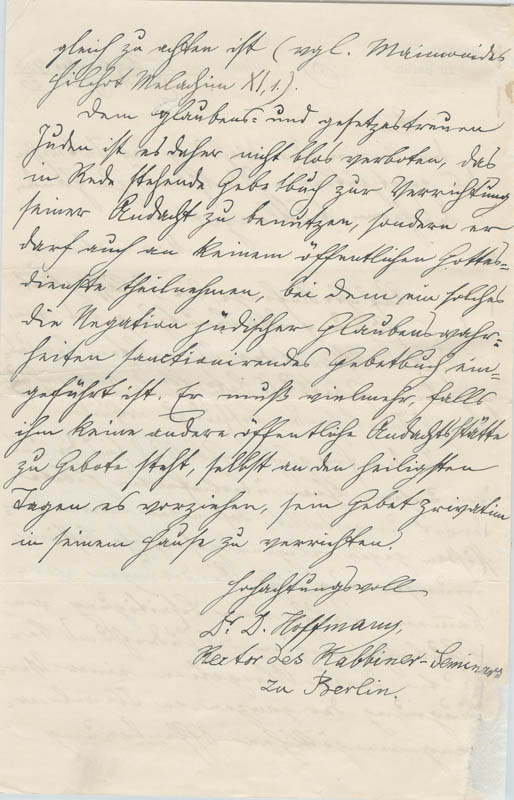 gleich zu achten ist (vgl. Maimonides
Hilchot Melachim XI, 1.).
Dem glaubens- und gesetzestreuen
Juden ist es daher nicht blos verboten, das
in Rede stehende Gebetbuch zur Verrichtung
seiner Andacht zu benutzen, sondern er
darf auch an keinem öffentlichen Gottes-
dienste theilnehmen, bei dem ein solches
die Negation jüdischer Glaubenswahr-
heiten sanctionirendes Gebetbuch ein-
geführt ist. Er muß vielmehr, falls
ihm keine andere öffentliche Andachtsstätte
zu Gebote steht, selbst an den heiligsten
Tagen es vorziehen, sein Gebet privatim
in seinem Hause zu verrichten.
Hochachtungsvoll
Dr. D. Hoffmann,
Rector des Rabbiner-Seminars
zu Berlin.